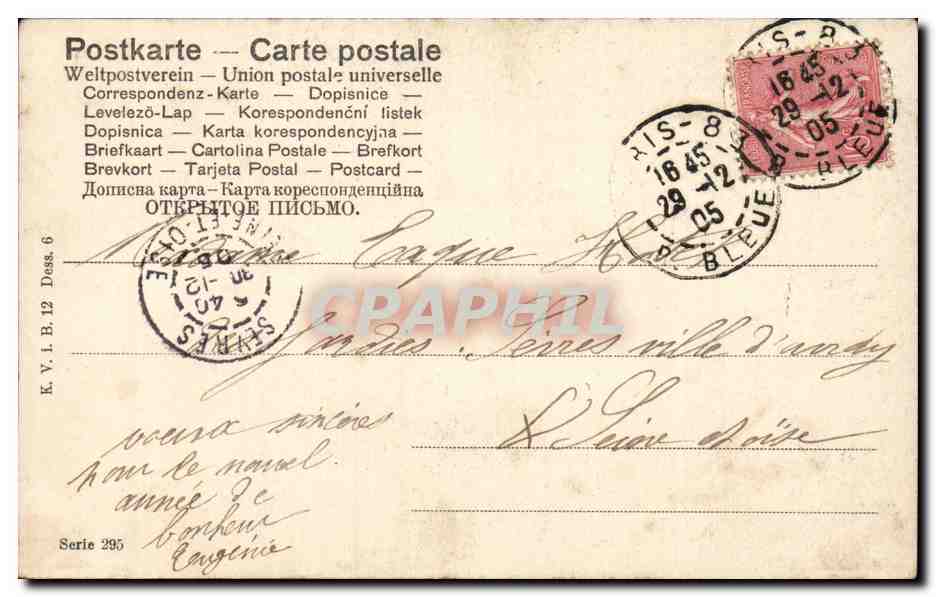 Postkarte — Carte postale
Weltpostverein — Union postale universelle
Correspondenz-Karte — Dopisnice —
Levelezö-Lap — Korespondenční listek
Dopisnica — Karta korespondencyjna —
Briefkaart — Cartolina Postale — Brefkort
Brevkort — Tarjeta Postal — Postcard —
Дописна карта — Карта кореспонденційна
ОТКРЫТОЕ ПИСЬМО.
RIS - 8
16 45
29 - 12
05
BLEUE
RIS - 8
16 45
29 - 12
05
BLEUE
SEVRES
SEINE-ET-OISE
6 40
30 -12
05
K. V. i B. 12 Dess. 6
CPAPHIL
Sèvres ville d'avray
Seine et oise
voeux sincères
pour le nouvel
année de
bonheur
Eugénie
Serie 295